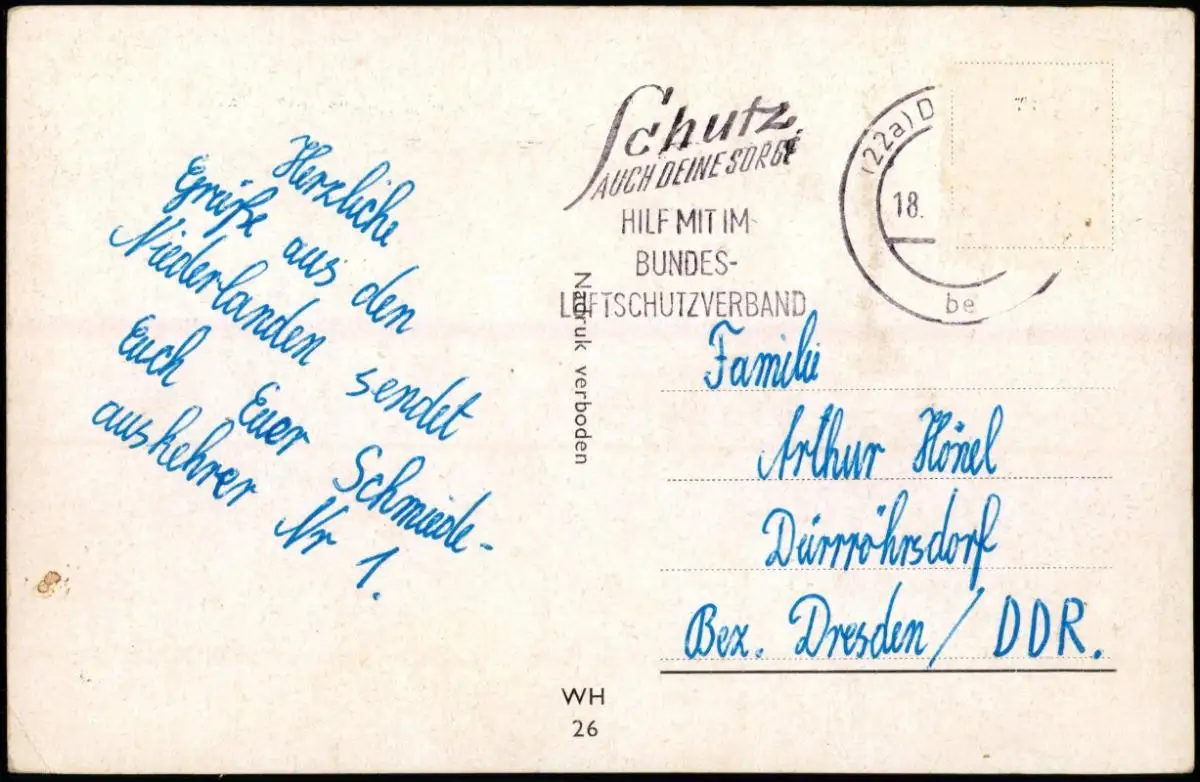 Herzliche
Grüße aus den
Niederlanden sendet
Euch Euer Schmiede-
auskehrer Nr 1.
Schutz
AUCH DEINE SORGE
HILF MIT IM
BUNDES-
LUFTSCHUTZVERBAND
(22a) D
18.
be
Nadruk verboden
Familie
Arthur Hönel
Dürrröhrsdorf
Bez. Dresden / DDR.
WH
26